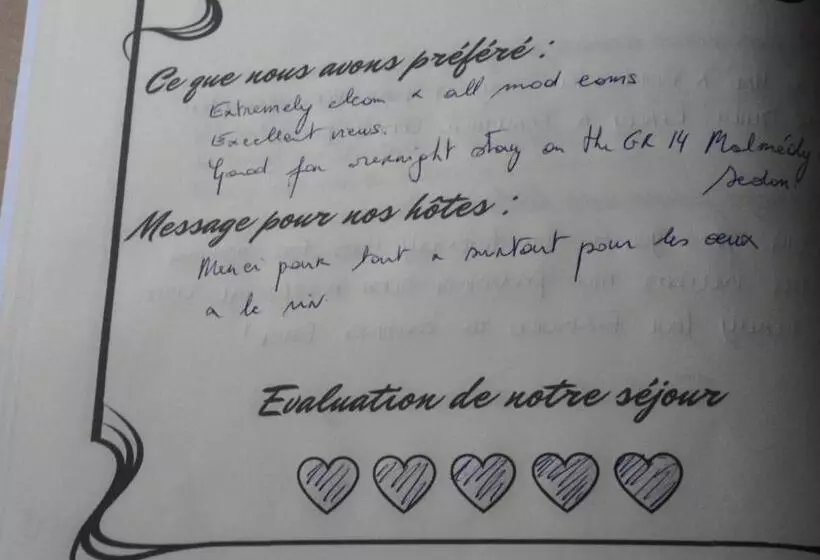 Ce que nous avons préféré :
Extremely clean & all mod coms
Excellent views.
Good for overnight stay on the GR 14 Malmédy
Sedan.
Message pour nos hôtes :
Merci pour tout & surtout pour les oeux
& le vin
Evaluation de notre séjour